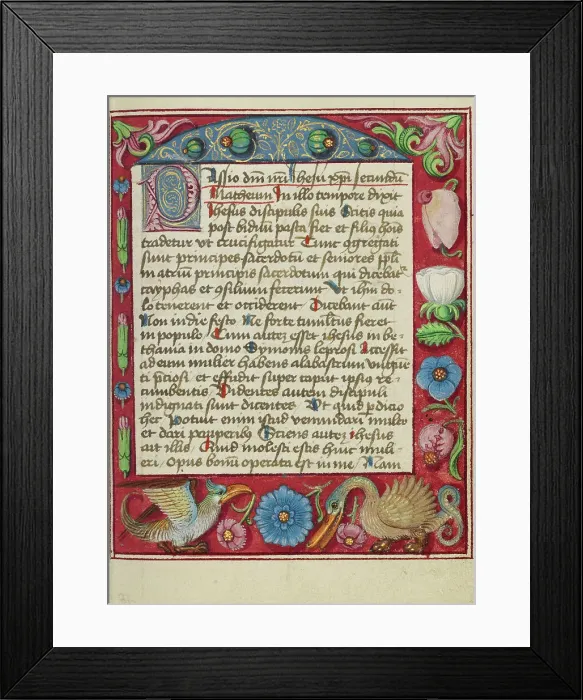 Passio dni nri Jhesu xpi secundu
Matheum In illo tempore dixit
Jhesus discipulis suis Scitis quia
post biduu pasca fiet et filius hois
tradetur vt crucifigatur Tunc aggregati
sunt principes sacerdotu et seniores ppli
in atriu principis sacerdotum qui dicebatr
cayphas et 9silium fecerunt Vt ihm do-
lo tenerent et occiderent Dicebant aut
Non in die festo Ne forte tumultus fieret
in populo Cum autez esset ihesus in be-
thania in domo Symonis leprosi Accessit
ad eum mulier habens alabastrum vnguen
ti p̄ciosi et effudit super caput ipsius re-
cumbentis Videntes autem discipuli
indignati sunt dicentes Vt quid pdicio
hec Potuit enim istud venundari multo
et dari pauperibus Sciens autez ihesus
ait illis Quid molesti estis huic muli
eri Opus bonu operata est in me Nam